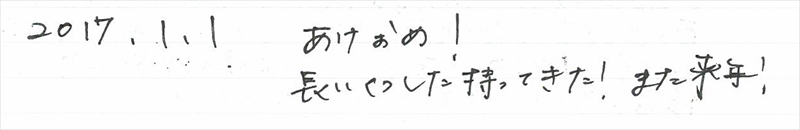 2017.1.1 あけおめ!
長いくつした持ってきた!また来年!